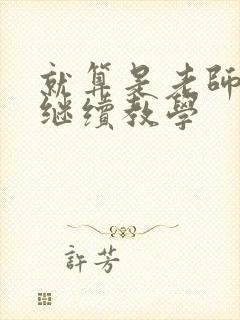 就算是老師
继續教學
許芳